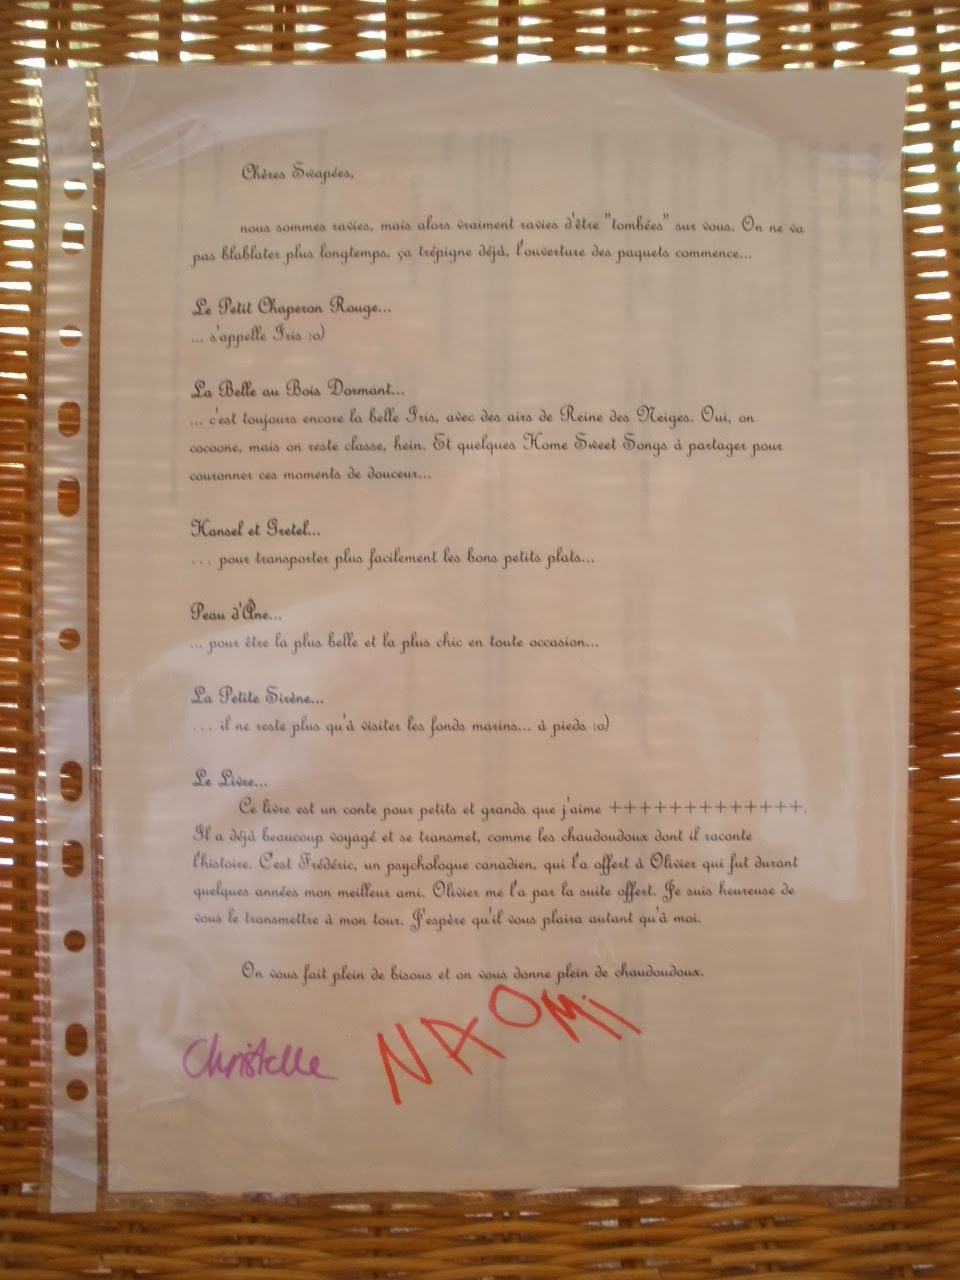 Chères Swapées,
nous sommes ravies, mais alors vraiment ravies d'être "tombées" sur vous. On ne va
pas blablater plus longtemps, ça trépigne déjà, l'ouverture des paquets commence...
Le Petit Chaperon Rouge...
... s'appelle Iris :o)
La Belle au Bois Dormant...
... c'est toujours encore la belle Iris, avec des airs de Reine des Neiges. Oui, on
cocoone, mais on reste classe, hein. Et quelques Home Sweet Songs à partager pour
couronner ces moments de douceur...
Hansel et Gretel...
... pour transporter plus facilement les bons petits plats...
Peau d'Âne...
... pour être la plus belle et la plus chic en toute occasion...
La Petite Sirène...
... il ne reste plus qu'à visiter les fonds marins... à pieds :o)
Le Livre...
Ce livre est un conte pour petits et grands que j'aime +++++++++++++.
Il a déjà beaucoup voyagé et se transmet, comme les chaudoudoux dont il raconte
l'histoire. C'est Frédéric, un psychologue canadien, qui l'a offert à Olivier qui fut durant
quelques années mon meilleur ami. Olivier me l'a par la suite offert. Je suis heureuse de
vous le transmettre à mon tour. J'espère qu'il vous plaira autant qu'à moi.
On vous fait plein de bisous et on vous donne plein de chaudoudoux.
Christelle NAOMi